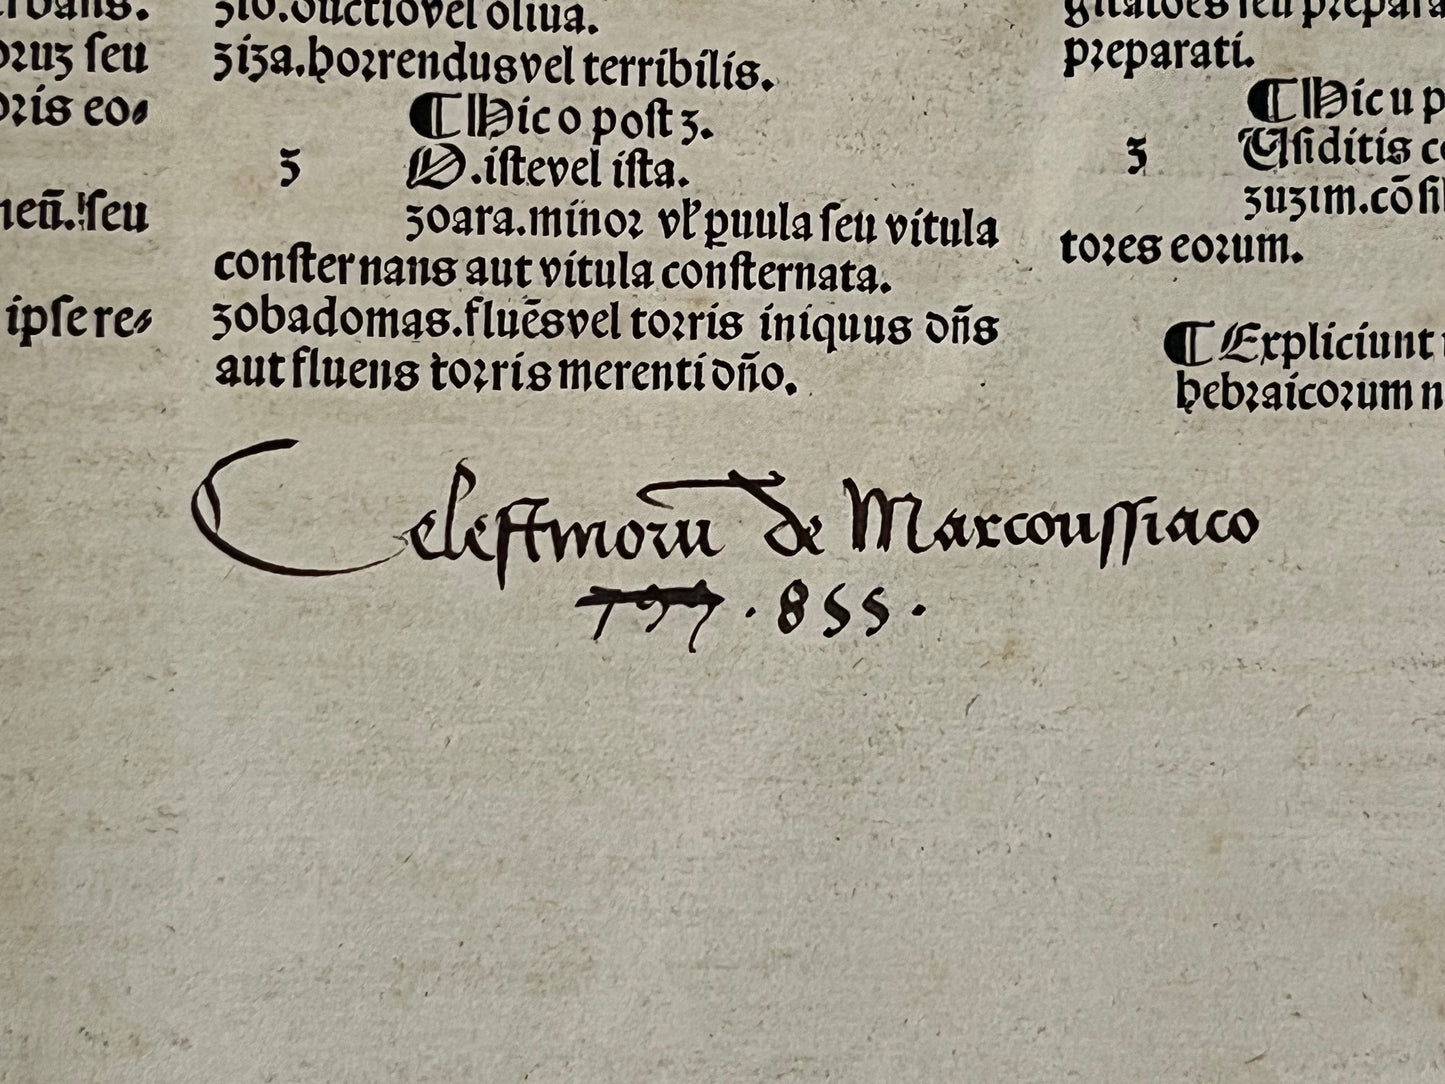 oꝛuʒ ſeu
oꝛis eo⸗
neū. ſeu
ipſe re⸗
ʒio.ductiovel oliua.
ʒiʒa.hoꝛrendusvel terribilis.
¶ Hic o poſt ʒ.
ʒ O.iſtevel iſta.
ʒoara.minoꝛ vꝉ ꝑuula ſeu vitula
conſternans aut vitula conſternata.
ʒobadomas.fluēsvel toꝛris iniquus dñs
aut fluens toꝛris merenti dño.
gitatoēs ſeu pꝛepara
pꝛeparati.
¶ Hic u p
ʒ Uſiditis co
ʒuʒim.cōſil
toꝛes eoꝛum.
¶ Expliciunt
hebꝛaicoꝛum n
Celeſtinoꝛū de Marcouſſiaco
797 . 855 .